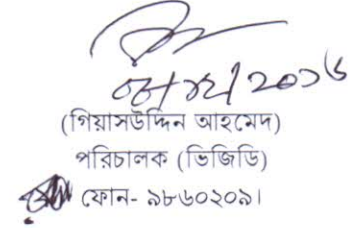 ২০১৬
(গিয়াসউদ্দিন আহমেদ)
পরিচালক (ভিজিডি)
ফোন- ৯৮৬০২০৯।